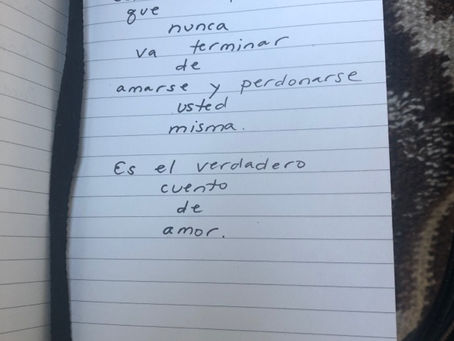 que
nunca
va terminar
de
amarse y perdonarse
usted
misma.
Es el verdadero
cuento
de
amor.